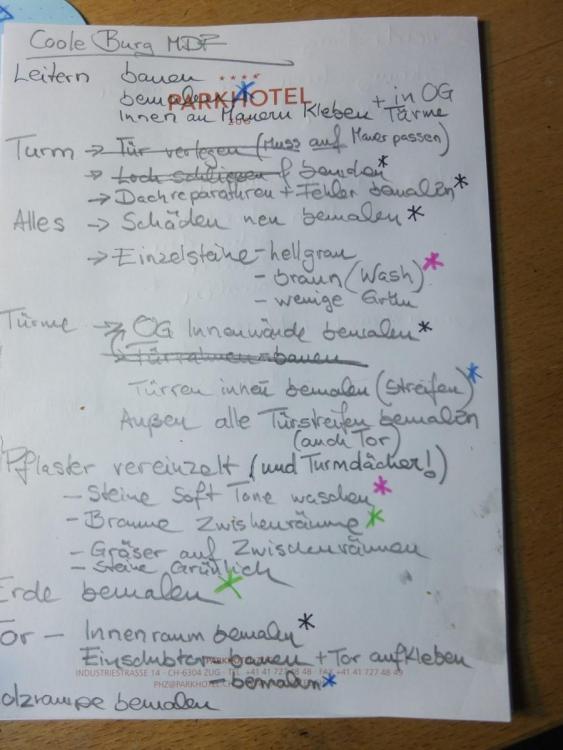 Coole Burg MDF
Leitern bauen
bemalen *
PARKHOTEL
ZUG
Innen an Mauern Kleben + in OG Türme
Turm → Tür verlegen (Muss auf Mauer passen)
→ Loch schliesen f bemalen *
→ Dachreparathren + Fehler bemalen *
Alles → Schäden neu bemalen *
→ Einzelsteine - hellgrau
- braun (Wash) *
- wenige Grün
Türme → OG Innenwände bemalen *
→ Türrahmen bauen
Türren innen bemalen (Streifen) *
Außen alle Türstreifen bemalen
(auch Tor)
Pflaster vereinzelt (und Turmdächer!)
- Steine Soft Tone waschen *
- Braune Zwischenräume *
- Gräser auf Zwischenräumen
- Steine Grünlich
Erde bemalen *
Tor - Innenraum bemalen *
Einschubtor bauen + Tor aufkleben
PARKHOTEL
INDUSTRIESTRASSE 14 · CH-6304 ZUG · TEL. +41 41 727 48 48 · FAX +41 41 727 48 49
PHZ@PARKHOTEL.CH
- bemalen *
olzrampe bemalen